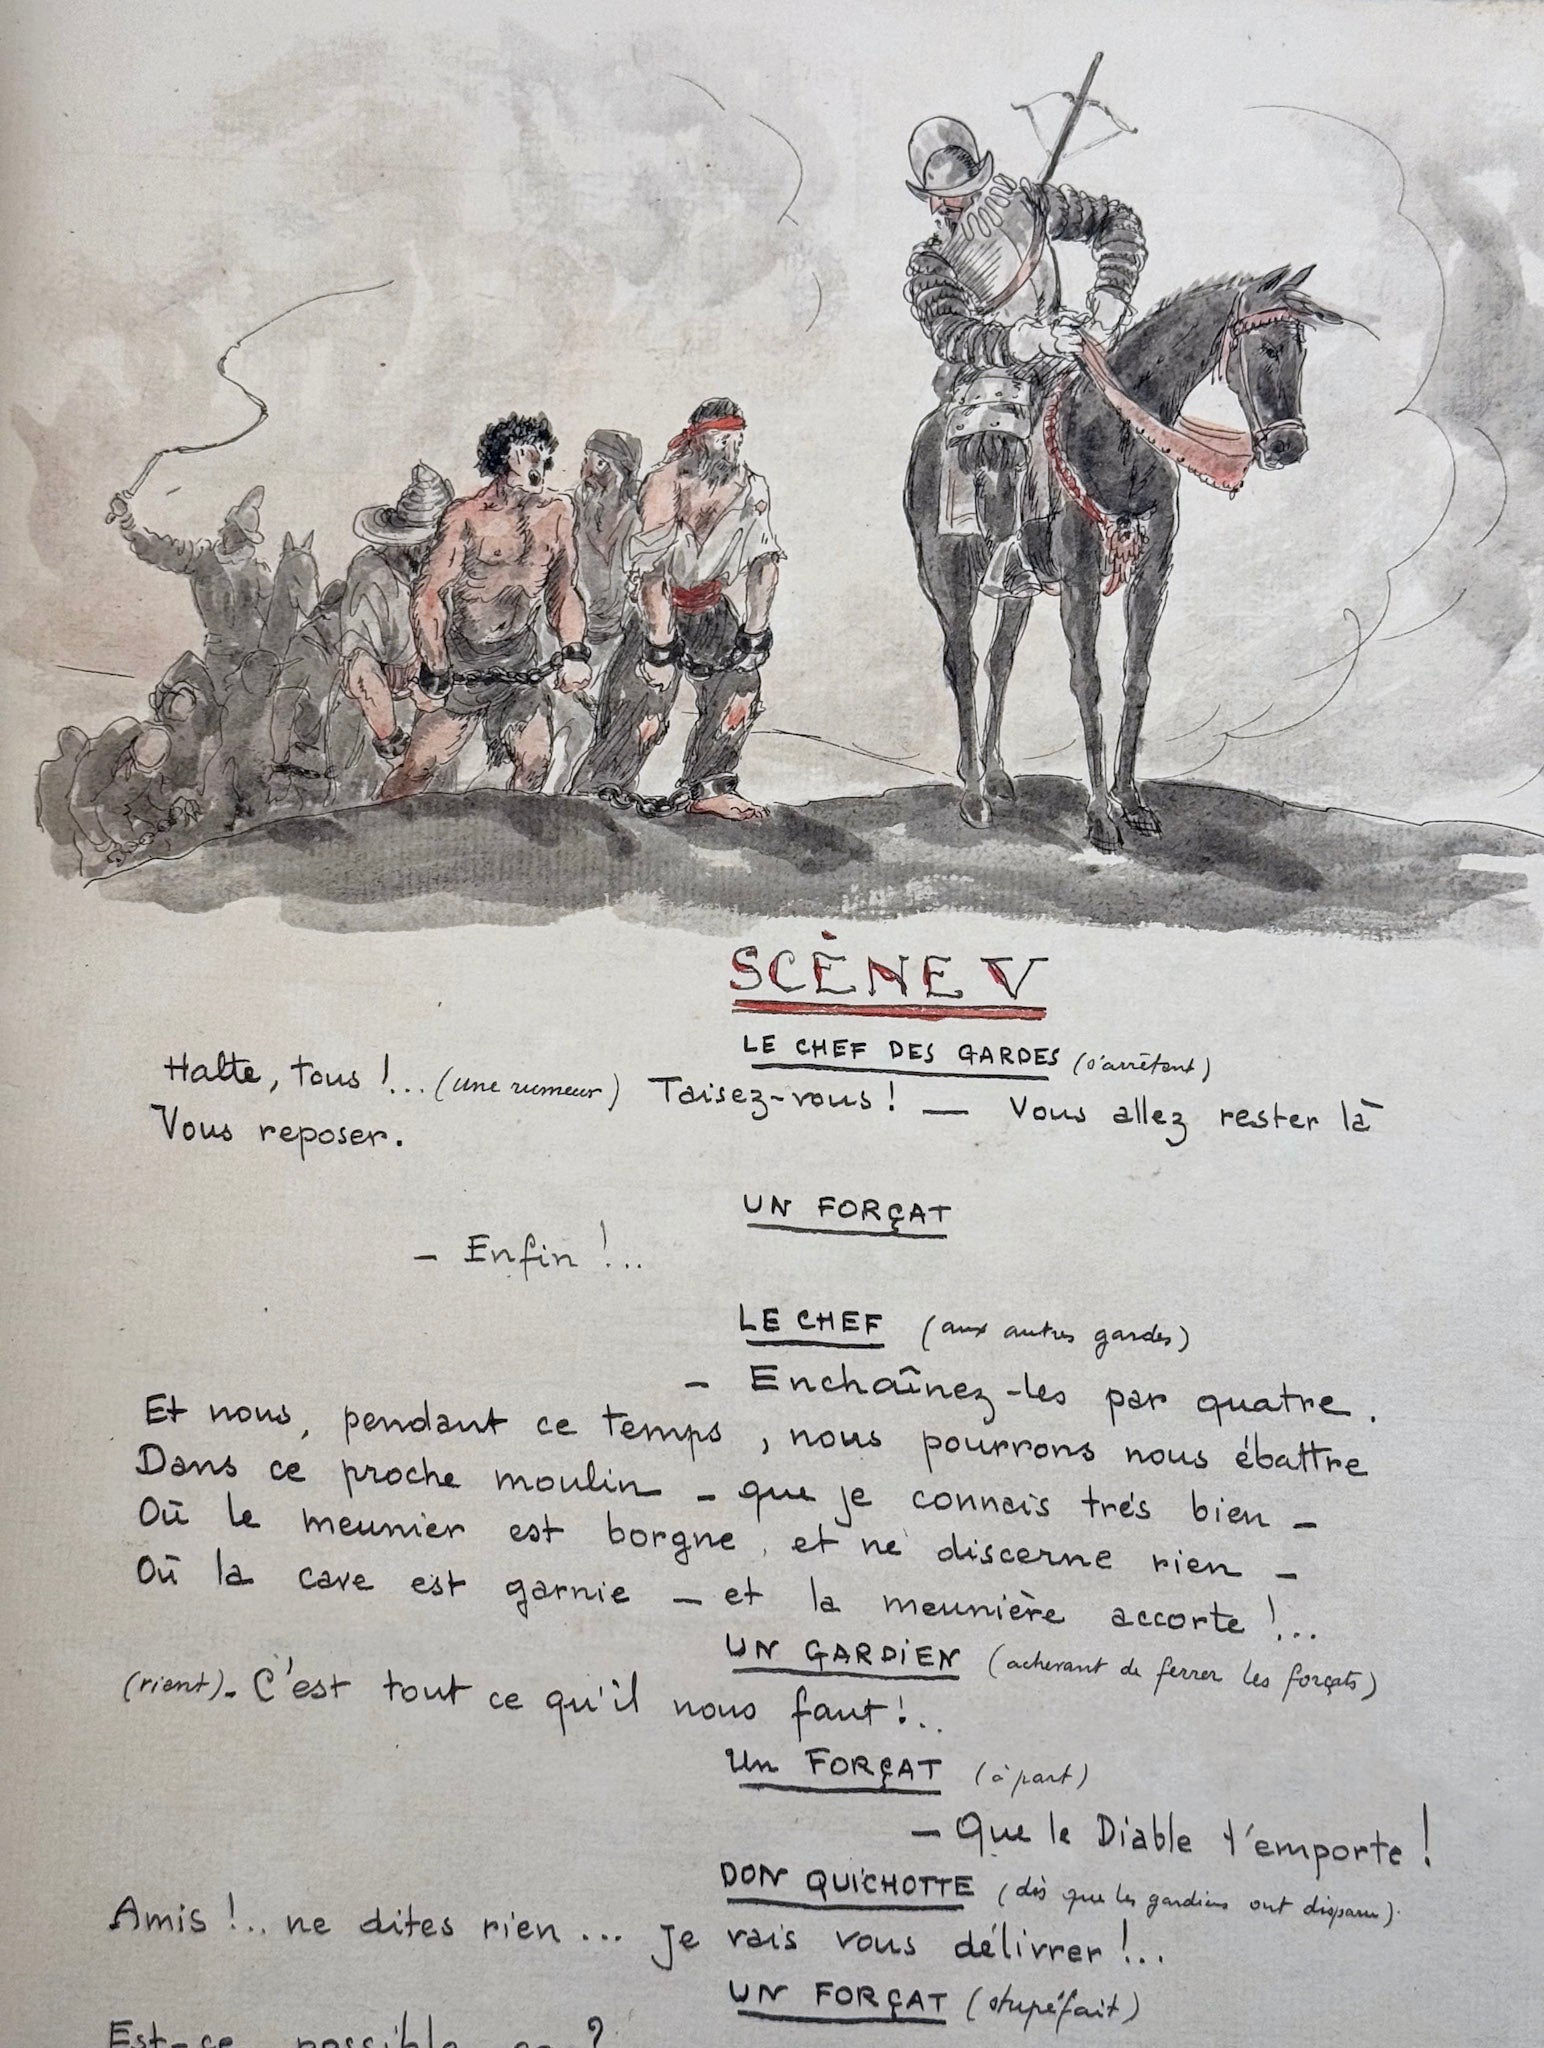 SCÈNE V
LE CHEF DES GARDES (s'arrêtant)
Halte, tous !... (une rumeur) Taisez-vous ! — Vous allez rester là
Vous reposer.
UN FORÇAT
– Enfin !...
LE CHEF (aux autres gardes)
– Enchaînez-les par quatre.
Et nous, pendant ce temps, nous pourrons nous ébattre
Dans ce proche moulin – que je connais très bien –
Où le meunier est borgne, et ne discerne rien –
Où la cave est garnie – et la meunière accorte !...
UN GARDIEN (achevant de ferrer les forçats)
(rient). C'est tout ce qu'il nous faut !..
Un FORÇAT (à part)
– Que le Diable t'emporte !
DON QUICHOTTE (dès que les gardiens ont disparu).
Amis !.. ne dites rien... je vais vous délivrer !...
UN FORÇAT (stupéfait)
Est-ce possible ça ?